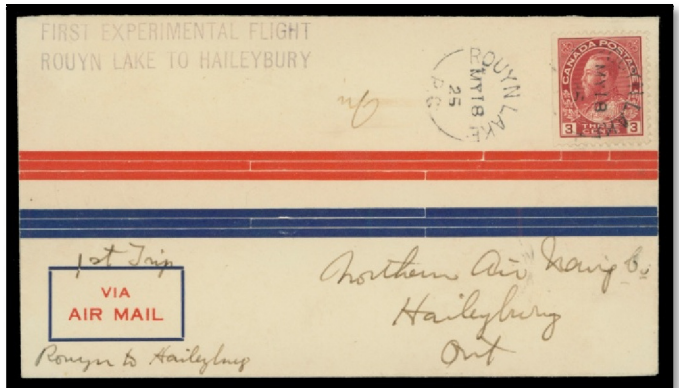 FIRST EXPERIMENTAL FLIGHT
ROUYN LAKE TO HAILEYBURY
ROUYN LAKE
MY 18
25
P.Q
CANADA POSTAGE
MY 18
3 THREE CENTS 3
1st Trip
VIA
AIR MAIL
Rouyn to Haileybury
Northern Air Navig Co
Haileybury
Ont